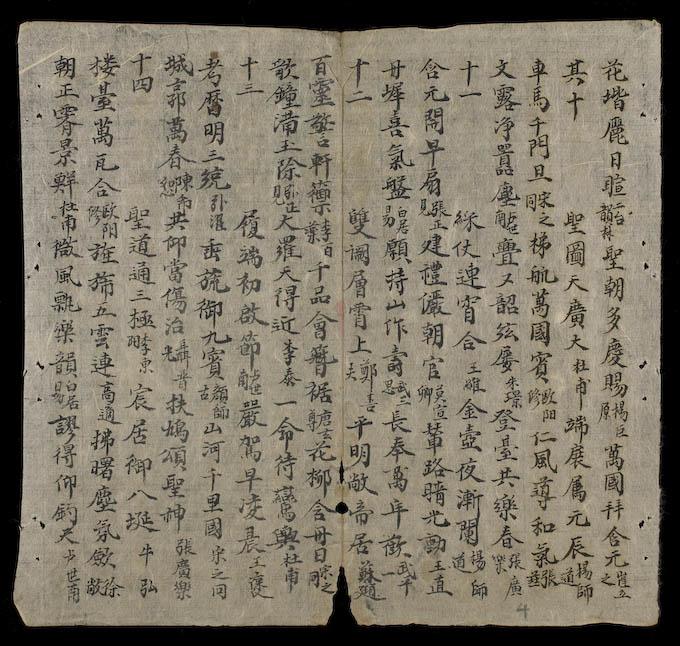 花堦麗日暄 聖朝多慶賜楊巨原 萬國拜含元崔立之
其十 聖圖天廣大杜甫 端扆屬元辰楊師道
車馬千門旦宋之同 梯航萬國賓歐陽修 仁風導和氣張
文露淨囂塵 登臺共樂春張廣樂
十一 綵仗連宵合王維 金壺夜漸闌楊師道
含元開早扇張正見 建禮儼朝官莫宣卿 輦路曉光動王直
丹墀喜氣盤白居易 願持山作壽武三思 長奉萬年歡武平一
十二 雙闕層霄上鄭善夫 平明敞帝居蘇頲
百靈警軒 千品會簪裾 花柳含丹日宋之同
歌鐘滿玉除張正見 大羅天得近李泰 一命待鸞輿杜甫
十三 履端初啟節 嚴駕早凌晨王褒
考曆明三統 垂旒御九賓顏師古 山河千里國宋之同
城郭萬春 共仰當傷治 扶鳩頌聖神張廣樂
十四 聖道通三極李東陽 宸居御八埏牛弘
樓臺萬瓦合歐陽修 旌旆五雲連高適 拂曙塵氛斂徐敞
朝正霽景鮮杜甫 微風飄樂韻白居易 謬得仰鈞天世南
4